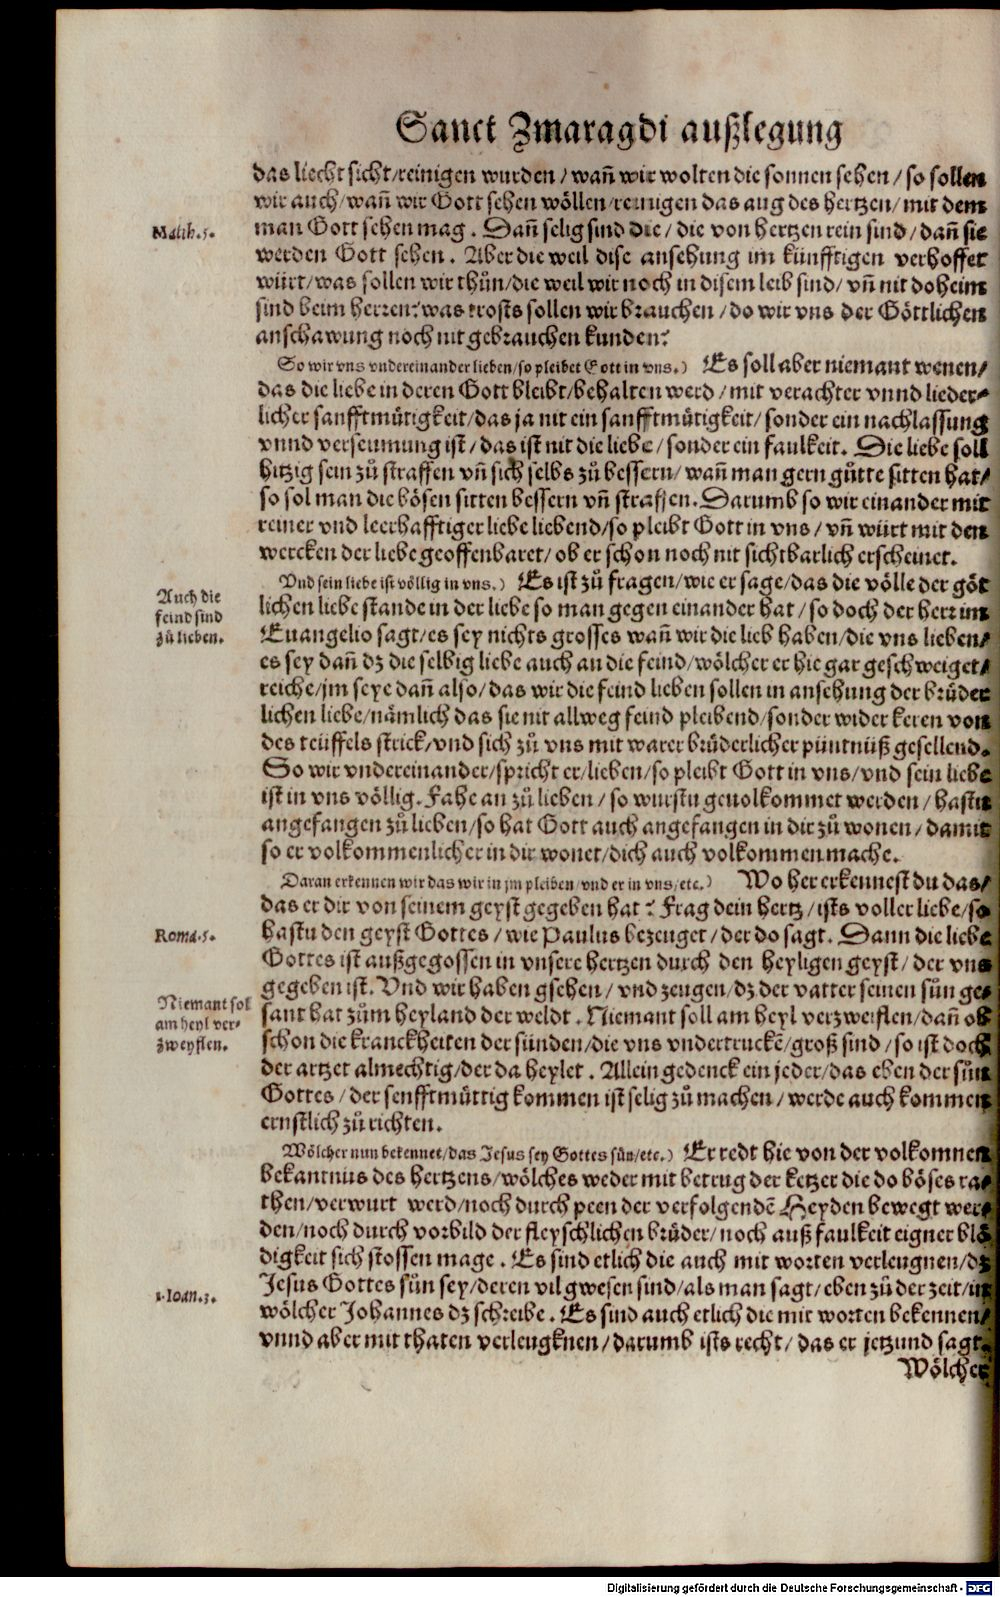 Sanct Zmaragdi außlegung
das liecht sicht/reinigen wurden/wañ wir wolten die sonnen sehen/so sollen
wir auch/wañ wir Gott sehen wöllen/reinigen das aug des hertzen/mit dem
Matth.5.
man Gott sehen mag. Dañ selig sind die/die von hertzen rein sind/dañ sie
werden Gott sehen. Aber die weil dise ansehung im künfftigen verhoffet
würt/was sollen wir thůn/die weil wir noch in disem leib sind/vñ nit doheim
sind beim herren? was trosts sollen wir brauchen/do wir vns der Göttlichen
anschawung noch nit gebrauchen kunden?
So wir vns vndereinander lieben/so pleibet Gott in vns.) Es soll aber niemant wenen/
das die liebe in deren Gott bleibt/behalten werd/mit verachter vnnd lieder-
licher sanfftmütigkeit/das ja nit ein sanfftmütigkeit/sonder ein nachlassung
vnnd verseumung ist/das ist nit die liebe/sonder ein faulkeit. Die liebe soll
hitzig sein zů straffen vñ sich selbs zů bessern/wañ man gern gůtte sitten hat/
so sol man die bösen sitten bessern vñ straffen. Darumb so wir einander mit
reiner vnd leerhafftiger liebe liebend/so pleibt Gott in vns/vñ würt mit den
wercken der liebe geoffenbaret/ob er schon noch nit sichtbarlich erscheinet.
Vnd sein liebe ist völlig in vns.) Es ist zů fragen/wie er sage/das die völle der göt
Auch die
feind sind
zů lieben.
lichen liebe stande in der liebe so man gegen einander hat/so doch der herr im
Euangelio sagt/es sey nichts grosses wañ wir die lieb haben/die vns lieben/
es sey dañ dz die selbig liebe auch an die feind/wölcher er hie gar geschweiget/
reiche/jm seye dañ also/das wir die feind lieben sollen in ansehung der brüder
lichen liebe/nämlich das sie nit allweg feind pleibend/sonder wider keren von
des teüffels strick/vnd sich zů vns mit warer brüderlicher püntnüß gesellend.
So wir vndereinander/spricht er/lieben/so pleibt Gott in vns/vnd sein liebe
ist in vns völlig. Fahe an zů lieben/so wurstu geuolkommet werden/hastu
angefangen zů lieben/so hat Gott auch angefangen in dir zů wonen/damit
so er volkommenlicher in dir wonet/dich auch volkommen mache.
Daran erkennen wir das wir in jm pleiben/vnd er in vns/etc.) Wo her erkennest du das/
das er dir von seinem geyst gegeben hat? Frag dein hertz/ists voller liebe/so
Roma.5.
hastu den geyst Gottes/wie Paulus bezeuget/der do sagt. Dann die liebe
Gottes ist außgegossen in vnsere hertzen durch den heyligen geyst/der vns
gegeben ist. Vnd wir haben gsehen/vnd zeugen/dz der vatter seinen sün ge-
Niemant sol
am heyl ver-
zweyflen.
sant hat zům heyland der weldt. Niemant soll am heyl verzweiflen/dañ ob
schon die kranckheiten der sünden/die vns vndertruckẽ/groß sind/so ist doch
der artzet almechtig/der da heylet. Allein gedenck ein jeder/das eben der sün
Gottes/der senfftmüttig kommen ist selig zů machen/werde auch kommen
ernstlich zů richten.
Wölcher nun bekennet/das Jesus sey Gottes sün/etc.) Er redt hie von der volkomnen
bekantnus des hertzens/wölches weder mit betrug der ketzer die do böses ra-
then/verwurt werd/noch durch peen der verfolgendẽ Heyden bewegt wer-
den/noch durch vorbild der fleyschlichen brüder/noch auß faulkeit eigner blö
digkeit sich stossen mage. Es sind etlich die auch mit worten verleugnen/dz
1.Ioan.3.
Jesus Gottes sün sey/deren vil gwesen sind/als man sagt/eben zů der zeit/in
wölcher Johannes dz schreibe. Es sind auch etlich die mit worten bekennen/
vnnd aber mit thaten verleugknen/darumb ists recht/das er jetzund sagt.
Wölcher
Digitalisierung gefördert durch die Deutsche Forschungsgemeinschaft - DFG